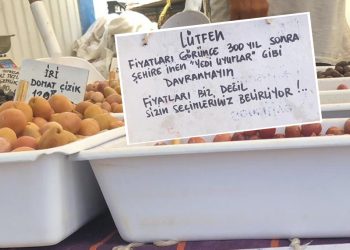 İRİ
DOMAT ÇİZİK
LÜTFEN
FİYATLARI GÖRÜNCE 300 YIL SONRA
ŞEHİRE İNEN "YEDİ UYURLAR" GİBİ
DAVRANMAYIN
FİYATLARI BİZ DEĞİL
SİZİN SEÇİMLERİNİZ BELİRLİYOR!..